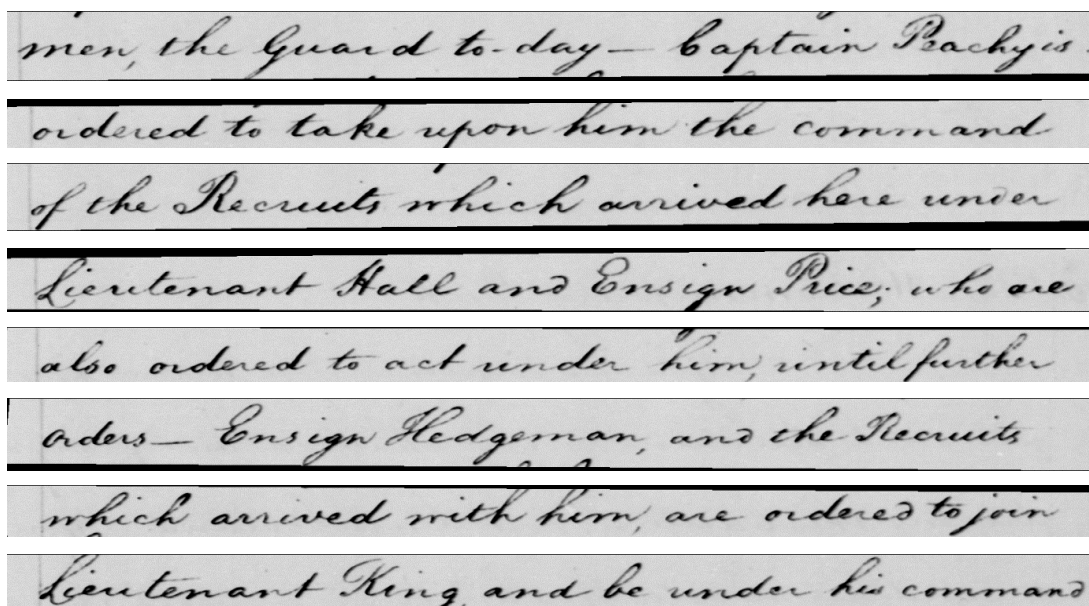 men, the Guard to-day — Captain Peachy is
ordered to take upon him the command
of the Recruits which arrived here under
Lieutenant Hall and Ensign Price; who are
also ordered to act under him, until further
orders — Ensign Hedgeman, and the Recruits
which arrived with him, are ordered to join
Lieutenant King and be under his command